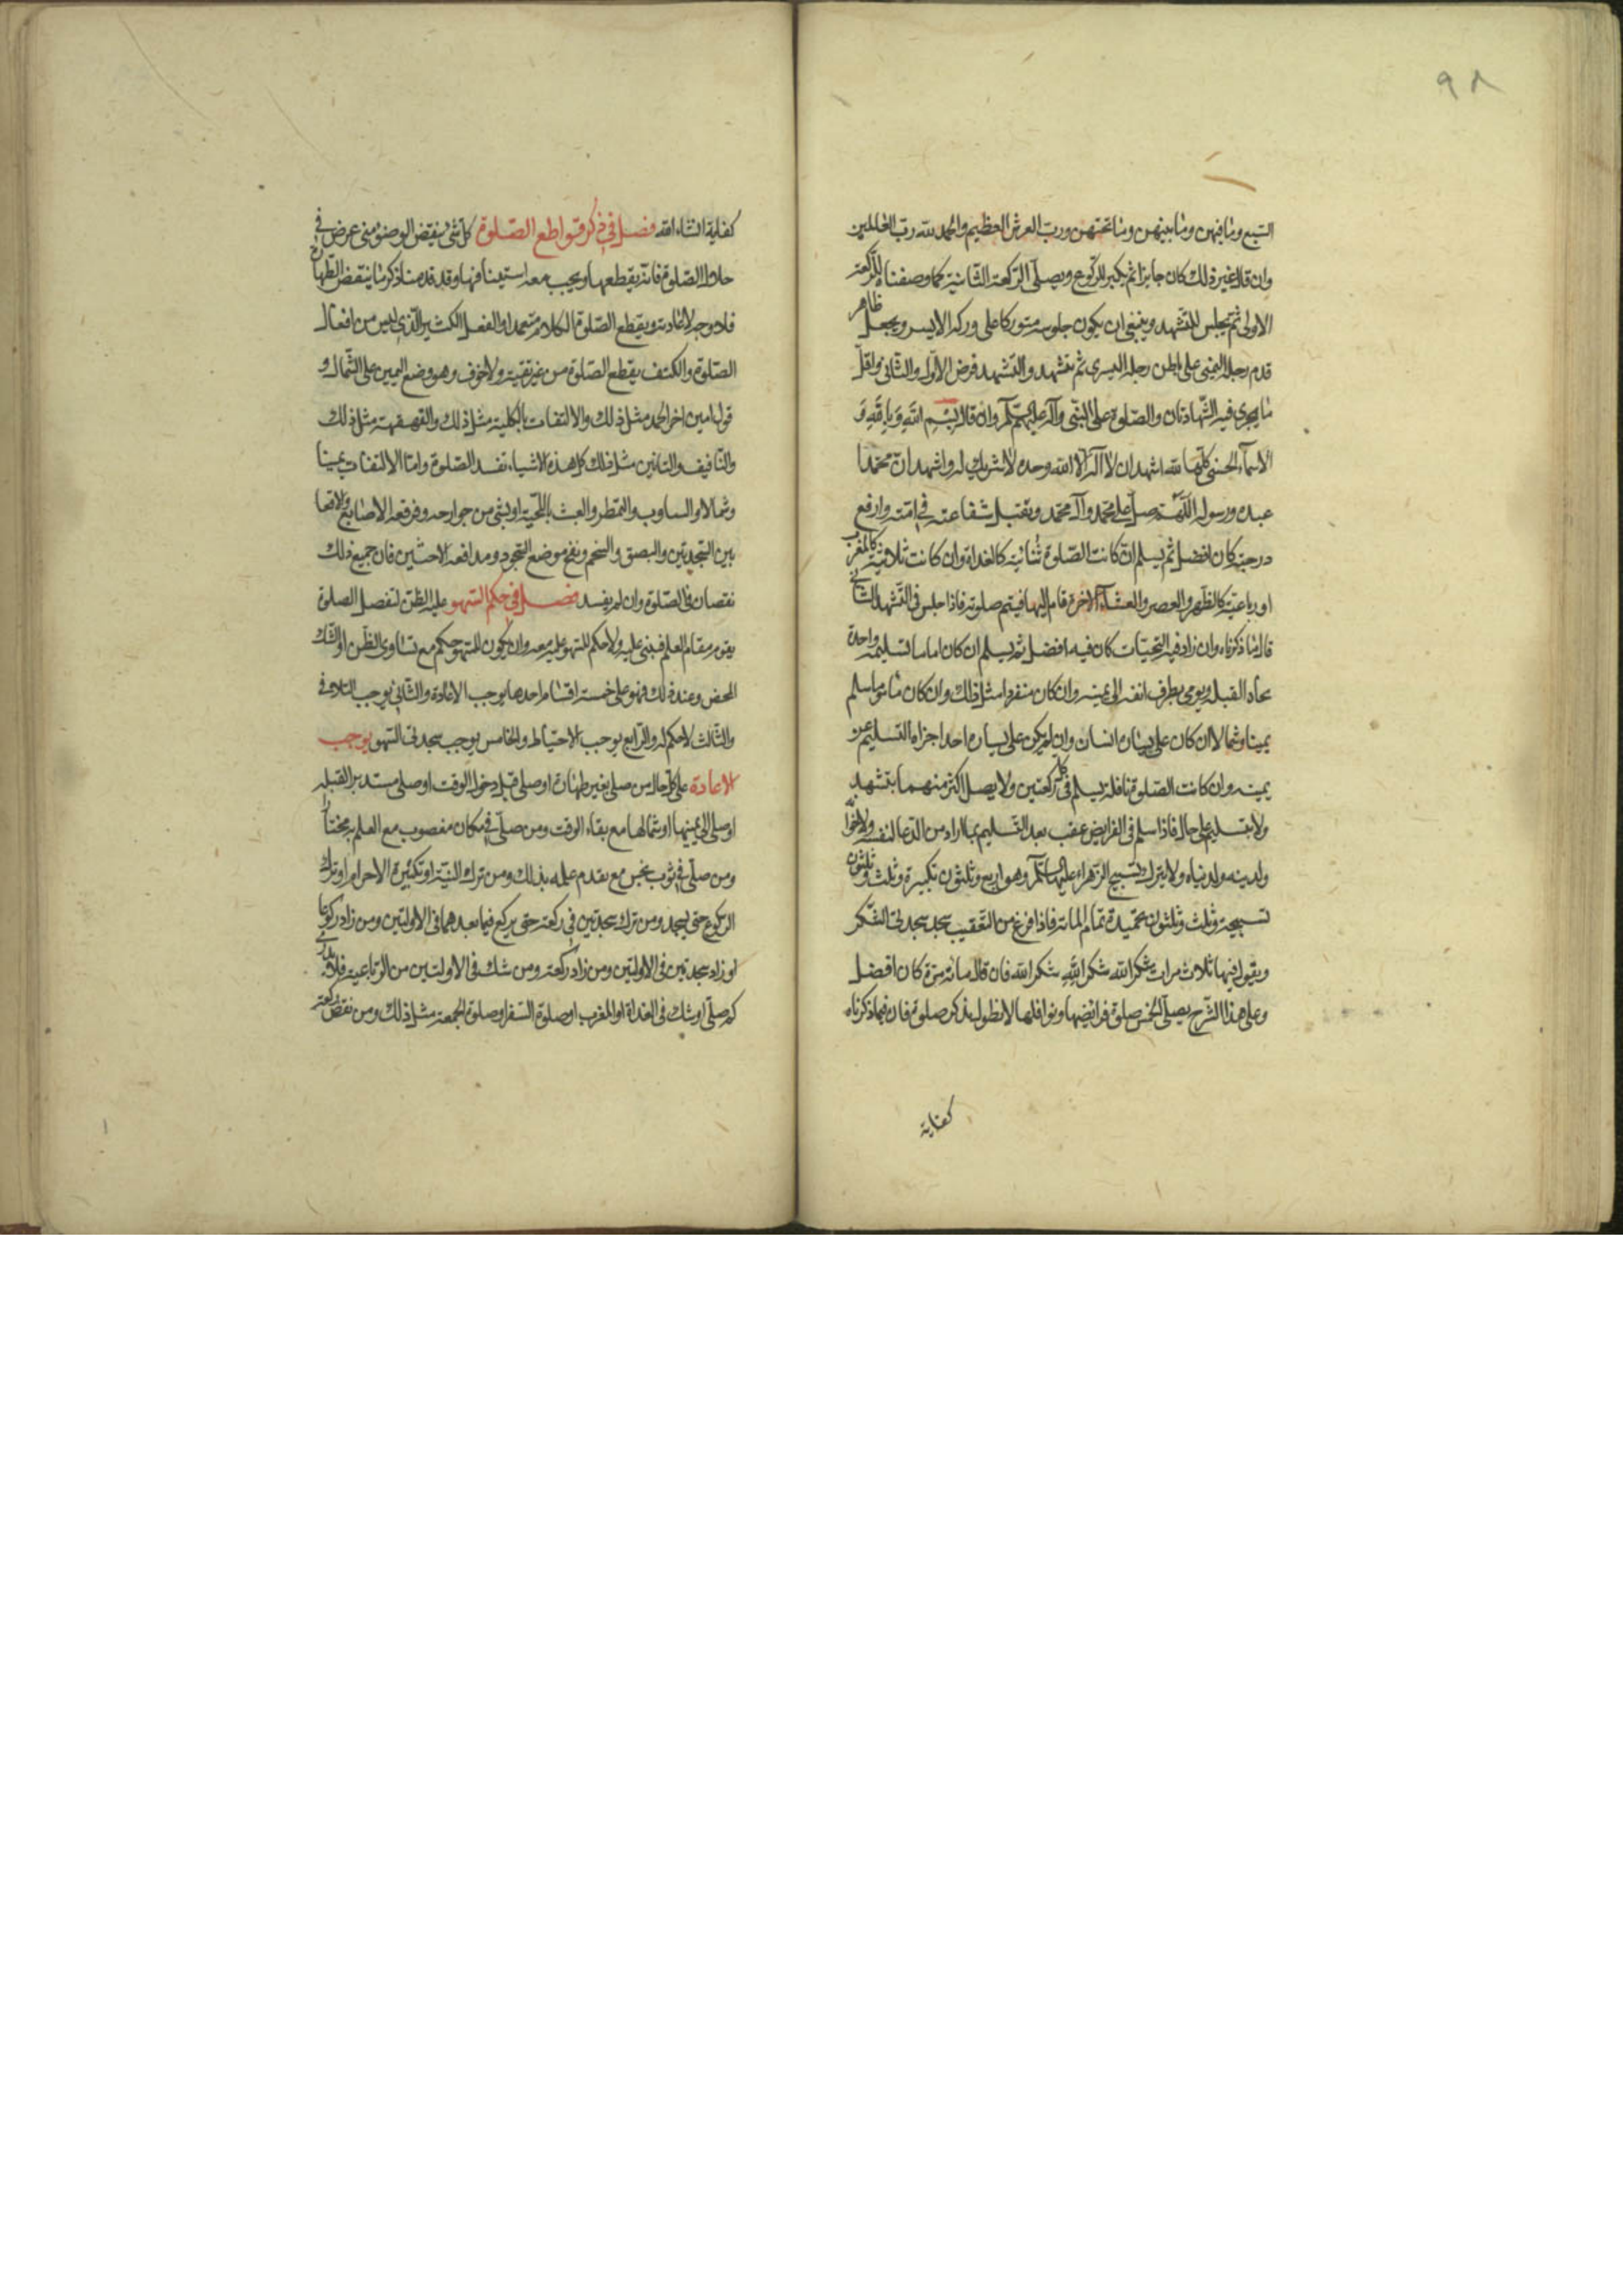 ٩٨
السبع وما فيهن وما بينهن وما تحتهن ورب العرش العظيم والحمد لله رب العالمين
وان قال غير ذلك كان جايزا ثم يكبر للركوع ويصلى الركعة الثانية كما وصفناه للركعة
الاولى ثم يجلس للتشهد وينبغى ان يكون جلوسه متوركا على وركه الايسر ويجعل ظاهر
قدم رجله اليمنى على باطن رجله اليسرى ثم يتشهد والتشهد فرض الاول والثانى واقل
ما يجرى فيه الشهادتان والصلوة على النبى وآله عليهم السلام وان قال بسم الله وبالله و
الاسماء الحسنى كلها لله اشهد ان لا اله الا الله وحده لا شريك له واشهد ان محمدا
عبده ورسوله اللهم صل على محمد وآل محمد وتقبل شفاعته في امته وارفع
درجته كان افضل ثم يسلم ان كانت الصلوة ثنائية كالغداة وان كانت ثلاثية كالمغرب
او رباعية كالظهر والعصر والعشاء الاخرة قام اليها فيتم صلوته فاذا جلس فى التشهد الثانى
قال ما ذكرناه وان زاد فيه التحيات كان فيه افضل ثم يسلم ان كان اماما تسليمة واحدة
تجاه القبلة ويومى بطرف انفه الى يمينه وان كان منفردا مثل ذلك وان كان ماموما سلم
يمينا وشمالا ان كان على يساره انسان وان لم يكن على يساره احد اجزاه التسليم عن
يمينه وان كانت الصلوة نافلة يسلم فى كل ركعتين ولا يصل اكثر منهما بتشهد
ولا بتسليم على حال فاذا سلم فى الفرايض عقب بعد التسليم بما اراد من الدعا لنفسه ولاخوانه
ولدينه ولدنياه ولا يترك تسبيح الزهراء عليها السلام وهو اربع وثلثون تكبيرة وثلث وثلثون
تسبيحة وثلث وثلثون تحميدة تمام المائة فاذا فرغ من التعقيب سجد سجدتى الشكر
ويقول فيها ثلاث مرات شكرا لله شكرا لله شكرا لله فان قال مائة مرة كان افضل
وعلى هذا الشرح يصلى الخمس صلوة فرائضها ونوافلها لا نطول بذكر صلوة فان فيما ذكرناه
كفاية
كفاية انشاء الله فصل في ذكر قواطع الصلوة كل شى ينقض الوضو متى عرض في
حال الصلوة فانه يقطعها ويجب معه استينافها وقد قدمنا ذكر ما ينقض الطهارة
فلا وجه لاعادته ويقطع الصلوة الكلام متعمدا والفعل الكثير الذى ليس من افعال
الصلوة والكتف يقطع الصلوة من غير تقية ولا خوف وهو وضع اليمين على الشمال و
قول امين اخر الحمد مثل ذلك والالتفات بالكلية مثل ذلك والقهقهة مثل ذلك
والتافيف والتانين مثل ذلك كل هذه الاشياء تفسد الصلوة واما الالتفات يمينا
وشمالا والتثاوب والتمطى والعبث باللحية او بشى من جوارحه وفرقعة الاصابع والاقعا
بين السجدتين والبصق والتنخم ونفخ موضع السجود ومدافعة الاخبثين فان جميع ذلك
نقصان فى الصلوة وان لم يفسد فصل في حكم السهو غلبة الظن لتفصيل الصلوة
يقوم مقام العلم فيبنى عليه ولا حكم للسهو عليه معه وان يكون للسهو حكم مع تساوى الظن او الشك
المحض وعند ذلك فهو على خمسة اقسام احدها يوجب الاعادة والثانى يوجب التلافى
والثالث لا حكم له والرابع يوجب الاحتياط والخامس يوجب سجدتى السهو يوجب
الاعادة على كل حال من صلى بغير طهارة او صلى قبل دخول الوقت او صلى مستدبر القبلة
او صلى الى يمينها او شمالها مع بقاء الوقت ومن صلى في مكان مغصوب مع العلم به مختارا
ومن صلى في ثوب نجس مع تقدم علمه بذلك ومن ترك النية او تكبيرة الاحرام او ترك
الركوع حتى يسجد ومن ترك سجدتين في ركعة حتى يركع فيما بعدهما فى الاولتين ومن زاد ركوعا
او زاد سجدتين فى الاولتين ومن زاد ركعة ومن شك فى الاولتين من الرباعية فلا يدرى
كم صلى او شك فى الغداة او المغرب او صلوة السفر او صلوة الجمعة مثل ذلك ومن نقص ركعة